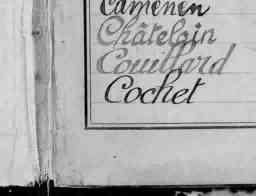 Camenen
Châtelain
Couillard
Cochet